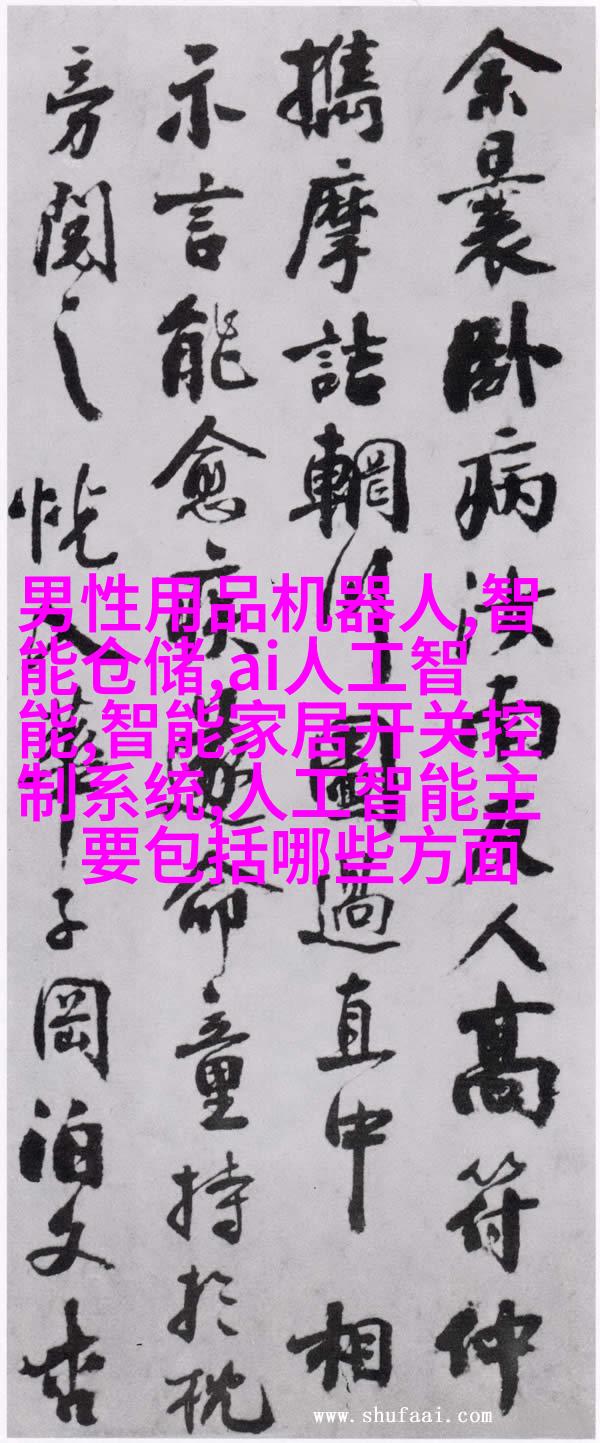 余曩卧病汝南友人高符仲
攜摩詰輞川圖過直中相
示言能愈疾遂命童持於枕
旁閱之恍入華子岡泊文杏
男性用品机器人,智
能仓储,ai人工智
能,智能家居开关控
制系统,人工智能主
要包括哪些方面
www.shufaai.com